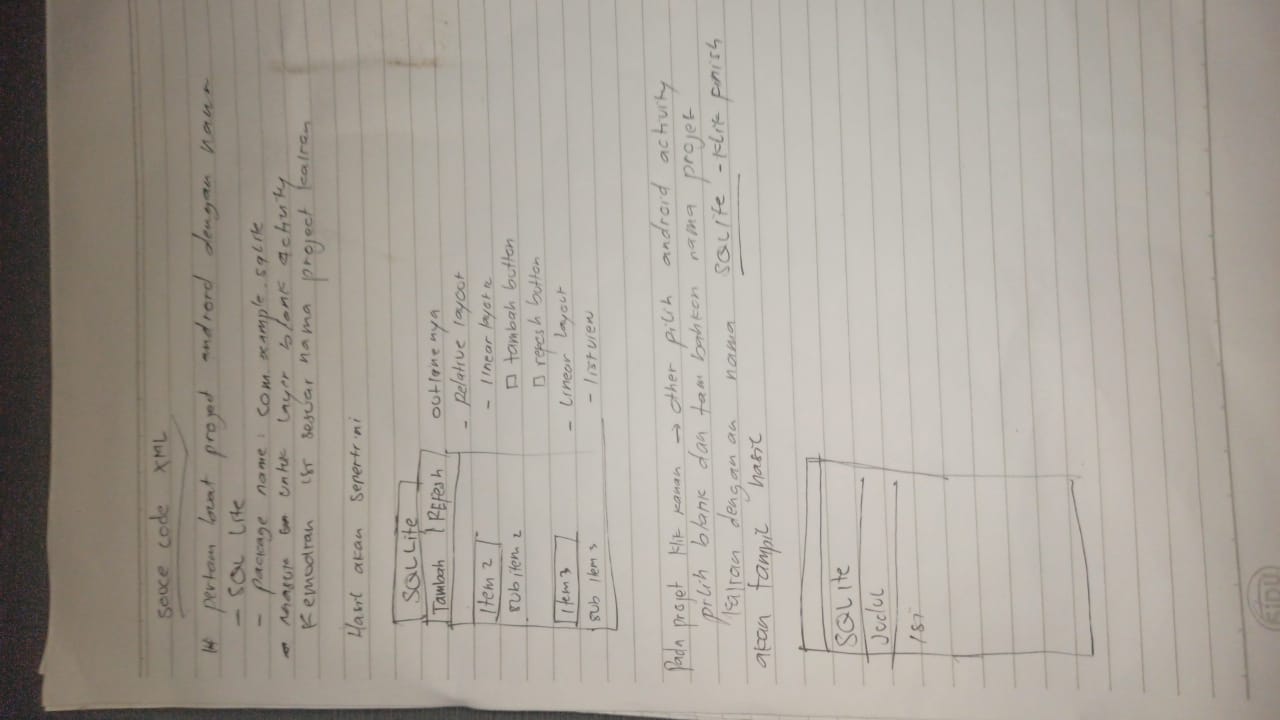 souce code XML
pertam buat projed android dengan nama
- SQL Lite
- package name: com.example.sqlite
untuk layer blank activity
Kemudian isi sesuai nama project kalian
Hasil akan seperti ini
SQL Lite
Tambah | REfesh
Item 2
sub item 2
Item 3
sub item 3
outlane nya
- Relative layout
- linear layout
□ tambah button
□ refesh button
- Linear layout
- listview
Pada projet klik kanan → other pilih android activity
pilih blank dan tambahkan nama projek
kalian dengan nama SQLite - klik finish
akan tampil hasil
SQLite
Judul
isi